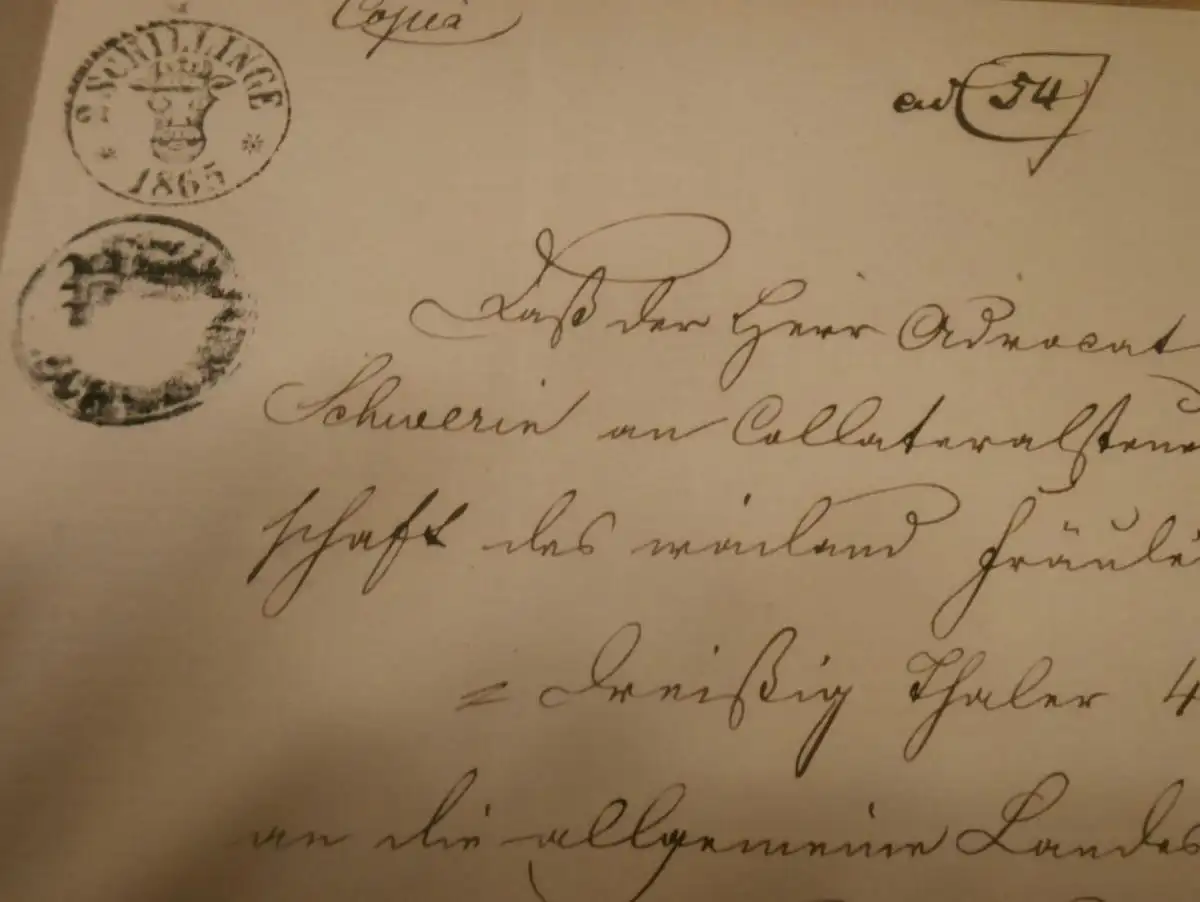 Copia
2 SCHILLINGE
1865
ad 54
Daß der Herr Advocat
Schwerin an Collateralsteue
schaft des weiland Fräulei
= Dreißig Thaler 4
an die allgemeine Landes